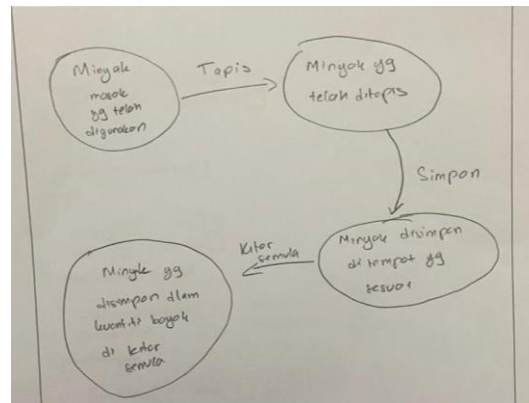 Minyak
masak
yg telah
digunakan
Tapis
Minyak yg
telah ditapis
Simpan
Minyak disimpan
di tempat yg
sesuai
kitar
semula
Minyak yg
disimpan dlam
kuantiti bayak
di kitar
semula